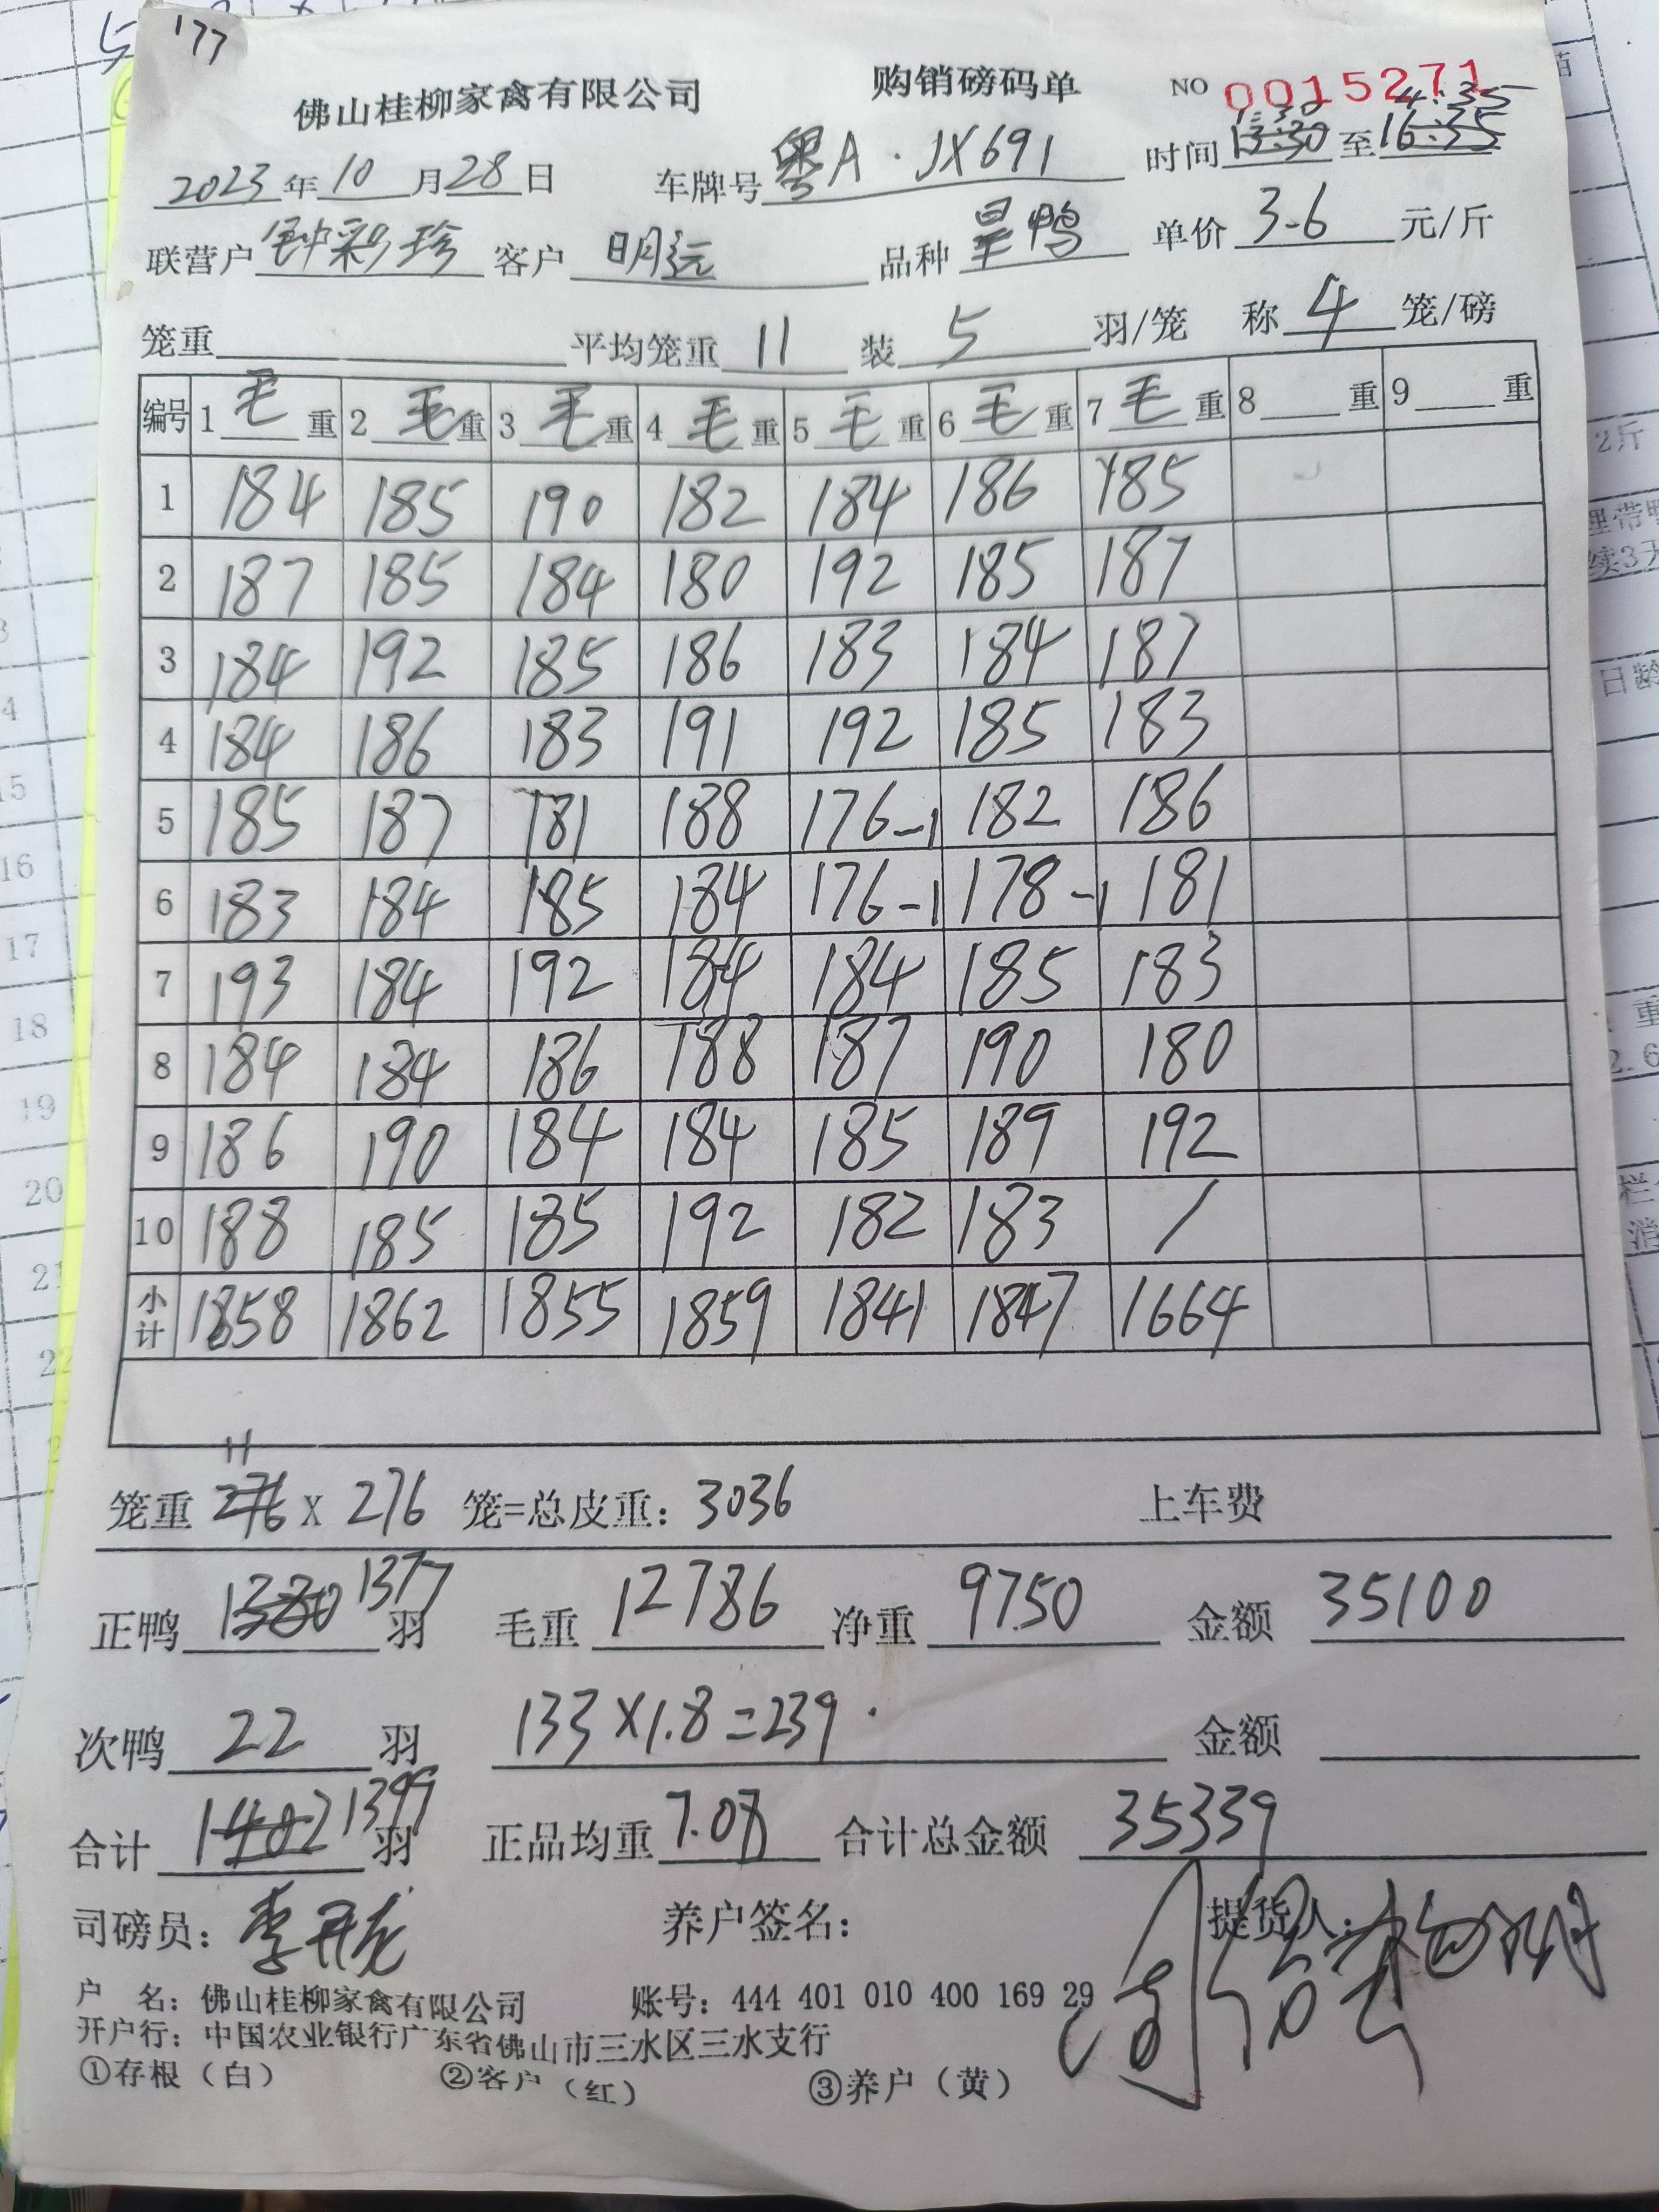 177
佛山桂柳家禽有限公司 购销磅码单 NO 0015271
2023年10月28日 车牌号粤A·JX691 时间13:30至16:35
联营户钟彩珍 客户明远 品种旱鸭 单价3-6元/斤
笼重 平均笼重11 装5羽/笼 称4笼/磅
编号 1毛重 2毛重 3毛重 4毛重 5毛重 6毛重 7毛重 8重 9重
1 184 185 190 182 184 186 185
2 187 185 184 180 192 185 187
3 184 192 185 186 183 184 187
4 184 186 183 191 192 185 183
5 185 187 181 188 176-1 182 186
6 183 184 185 184 176-1 178-1 181
7 193 184 192 184 184 185 183
8 184 184 186 188 187 190 180
9 186 190 184 184 185 189 192
10 188 185 185 192 182 183 /
小计 1858 1862 1855 1859 1841 1847 1664
11
笼重276 X 276 笼=总皮重：3036 上车费
正鸭1380 1377羽 毛重12786 净重9750 金额35100
次鸭22羽 133×1.8=239. 金额
合计1402 1399羽 正品均重7.08 合计总金额35339
司磅员：李开龙 养户签名： 提货人：
户 名：佛山桂柳家禽有限公司 账号：444 401 010 400 169 29
开户行：中国农业银行广东省佛山市三水区三水支行
①存根（白） ②客户（红） ③养户（黄）